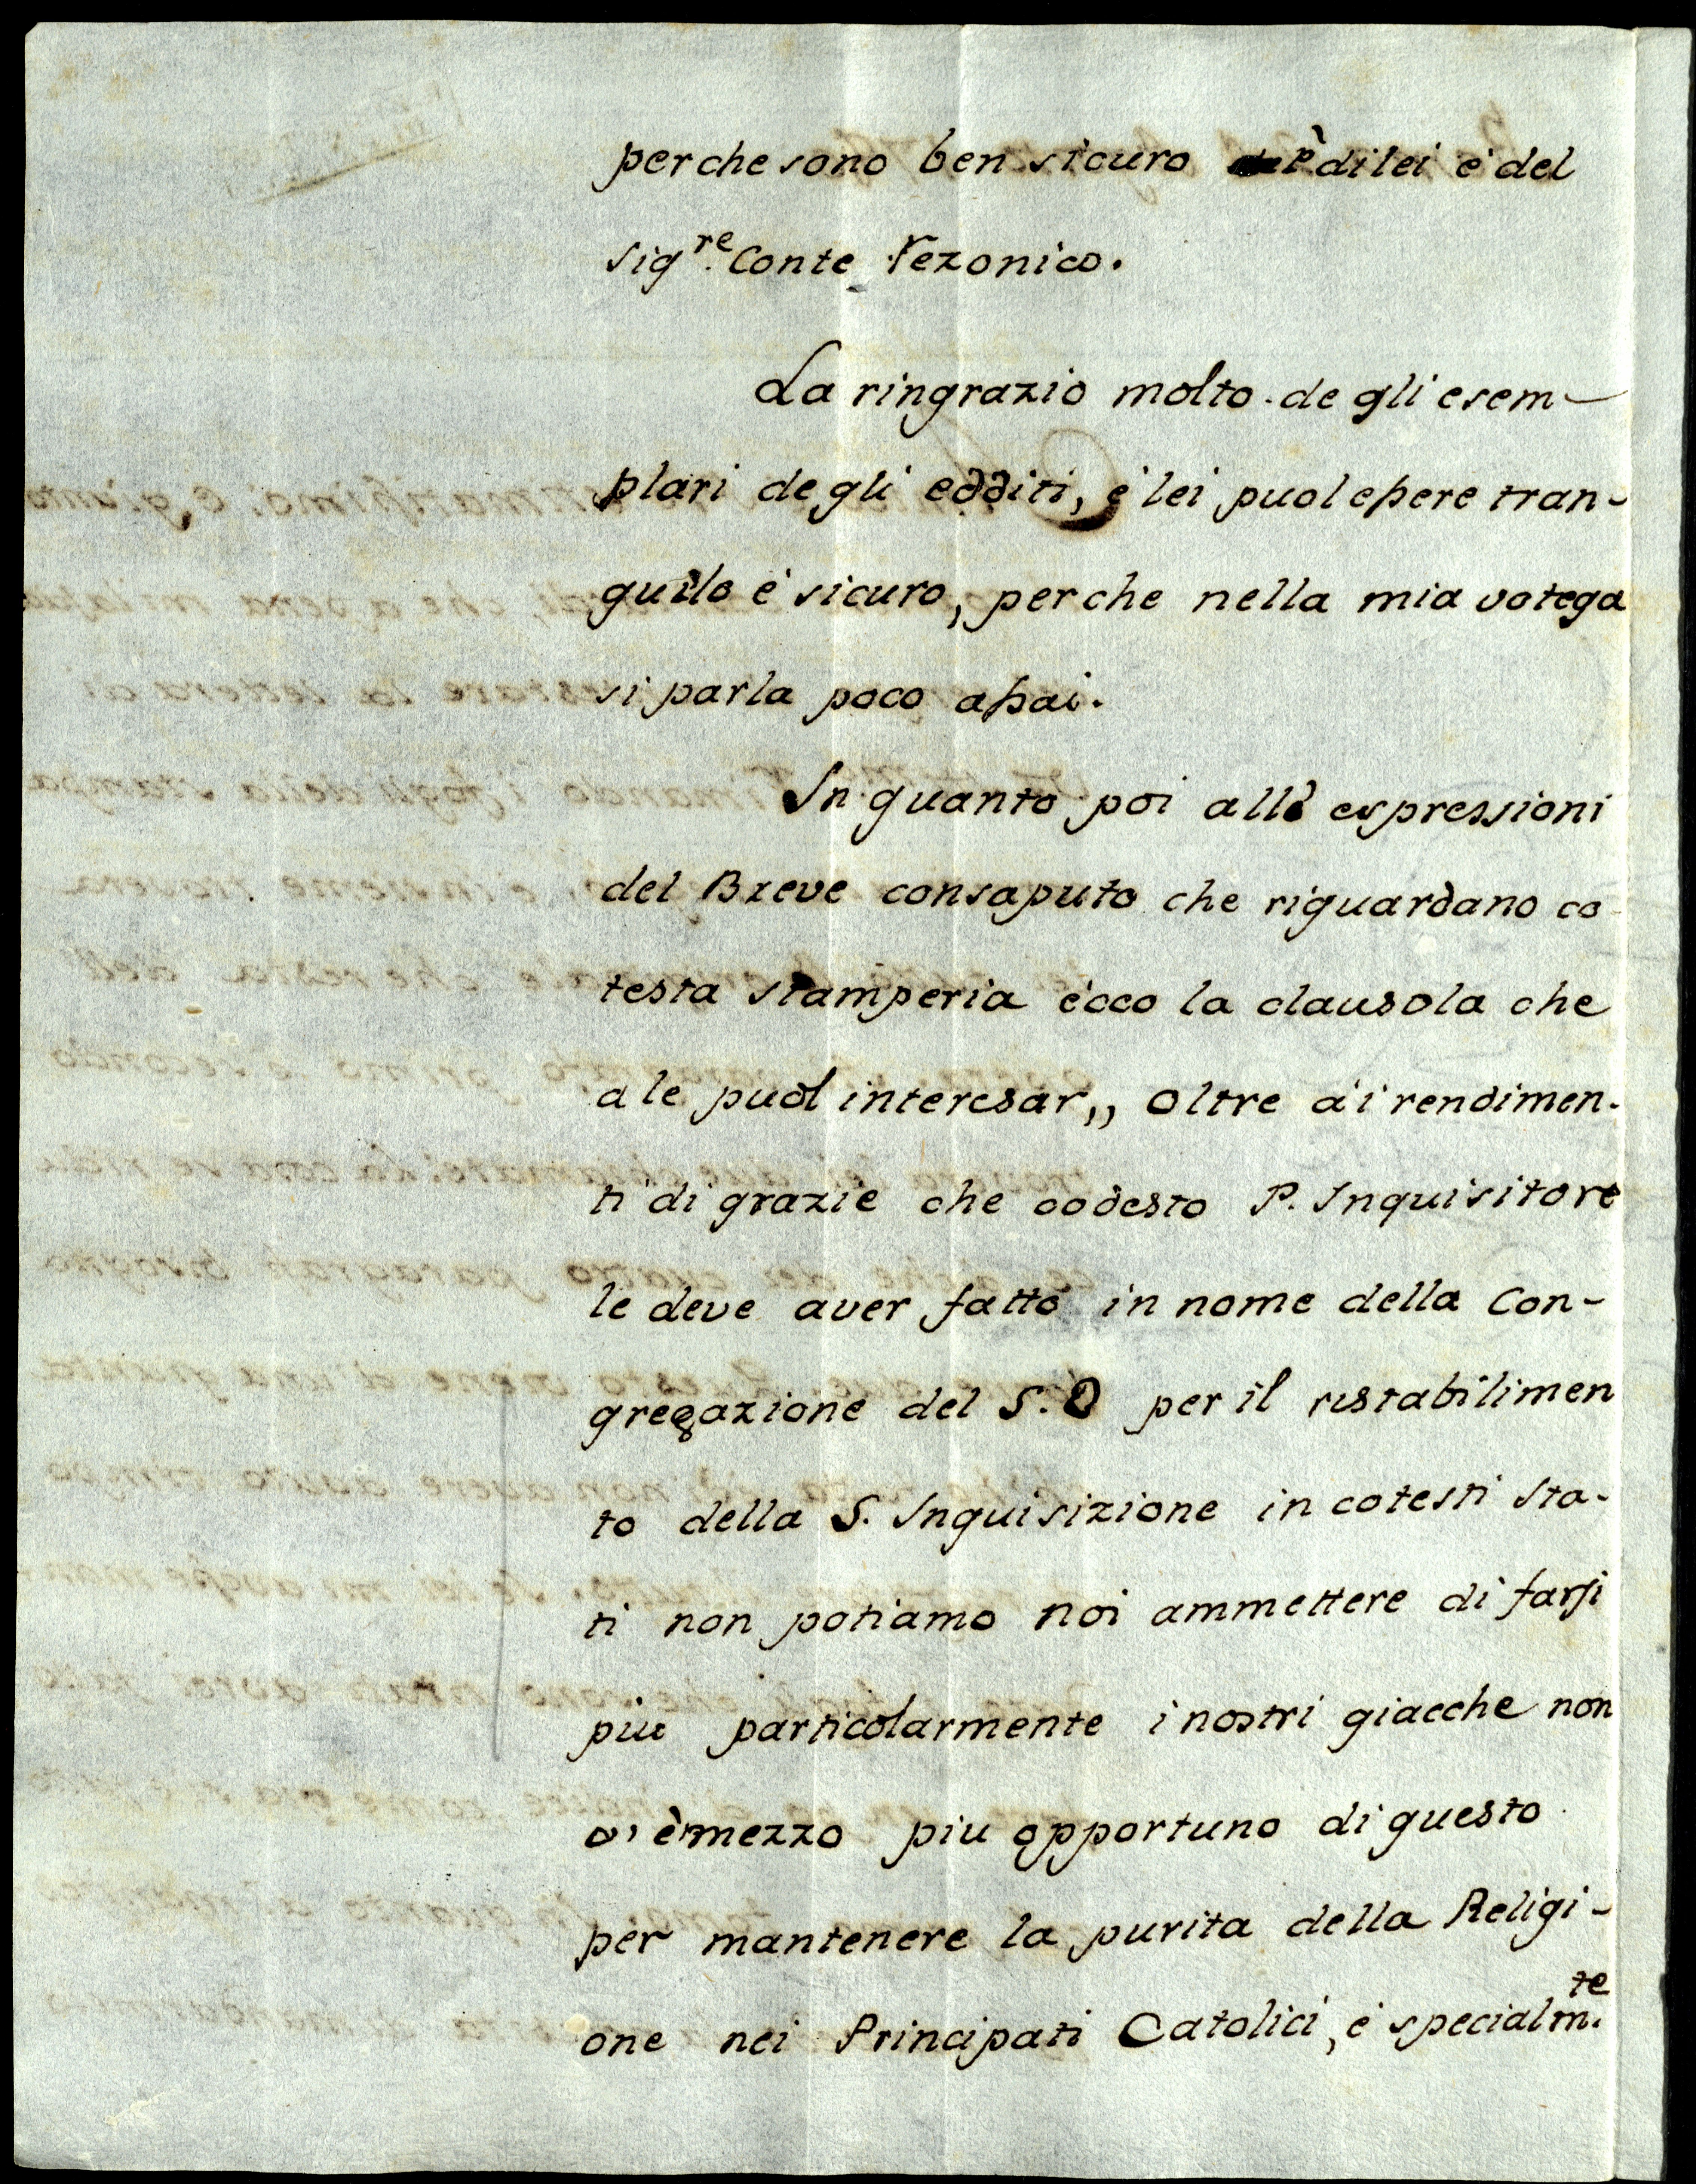 perche sono ben sicuro è di lei e' del
sigre. Conte Rezonico.
La ringrazio molto de gli esem-
plari de gli edditi, e' lei puol essere tran-
quilo e' sicuro, perche nella mia votega
si parla poco assai.
In quanto poi alle espressioni
del Breve consaputo che riguardano co
testa stamperia ecco la clausola che
a le puol interesar,, oltre a'i rendimen-
ti di grazie che codesto P. Inquisitore
le deve aver fatto in nome della Con-
gregazione del S. O per il ristabilimen
to della S. Inquisizione in cotesti sta-
ti non potiamo noi ammettere di farsi
piu particolarmente i nostri giacche non
v'è mezzo piu opportuno di questo
per mantenere la purita della Religi-
one nei Principati Catolici, e' specialm.te